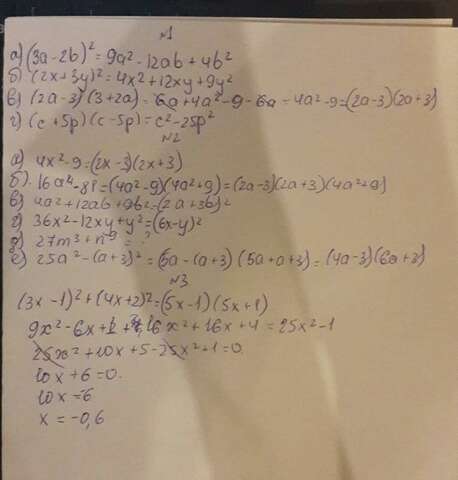 №1
а) (3a-2b)² = 9a² - 12ab + 4b²
б) (2x+3y)² = 4x² + 12xy + 9y²
в) (2a-3)(3+2a) = 6a + 4a² - 9 - 6a = 4a² - 9 = (2a-3)(2a+3)
г) (c+5p)(c-5p) = c² - 25p²
№2
а) 4x² - 9 = (2x-3)(2x+3)
б) 16a⁴ - 81 = (4a²-9)(4a²+9) = (2a-3)(2a+3)(4a²+9)
в) 4a² + 12ab + 9b² = (2a+3b)²
г) 36x² - 12xy + y² = (6x-y)²
д) 27m³ + n⁹ = ?
е) 25a² - (a+3)² = (5a-(a+3)(5a+a+3) = (4a-3)(6a+3)
№3
(3x-1)² + (4x+2)² = (5x-1)(5x+1)
9x² - 6x + 1 + 16x² + 16x + 4 = 25x² - 1
25x² + 10x + 5 - 25x² + 1 = 0
10x + 6 = 0.
10x = -6
x = -0,6